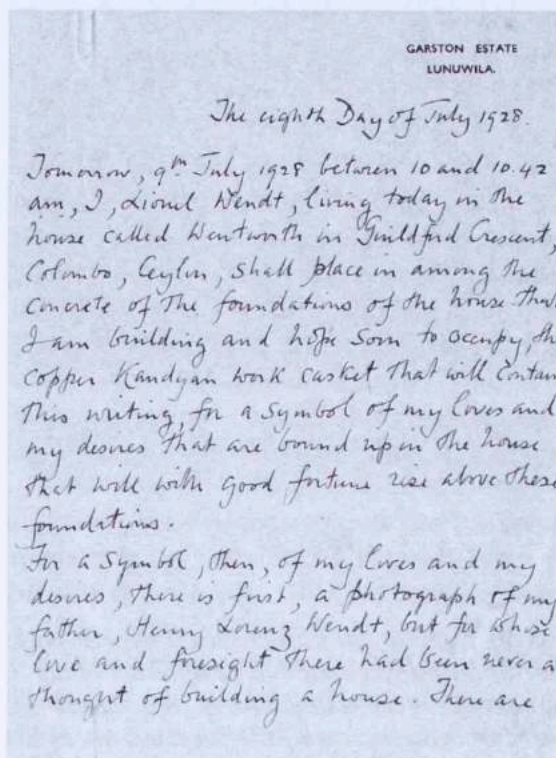 GARSTON ESTATE
LUNUWILA.
The eighth Day of July 1928.
Tomorrow, 9th July 1928 between 10 and 10.42
am, I, Lionel Wendt, living today in the
house called Wentworth in Guildford Crescent,
Colombo, Ceylon, shall place in among the
concrete of the foundations of the house that
I am building and hope soon to occupy, th
copper Kandyan work casket that will contain
this writing, for a symbol of my loves and
my desires that are bound up in the house
that will with good fortune rise above these
foundations.
For a symbol, then, of my loves and my
desires, there is first, a photograph of my
father, Henry Lorenz Wendt, but for whose
love and foresight there had been never a
thought of building a house. There are